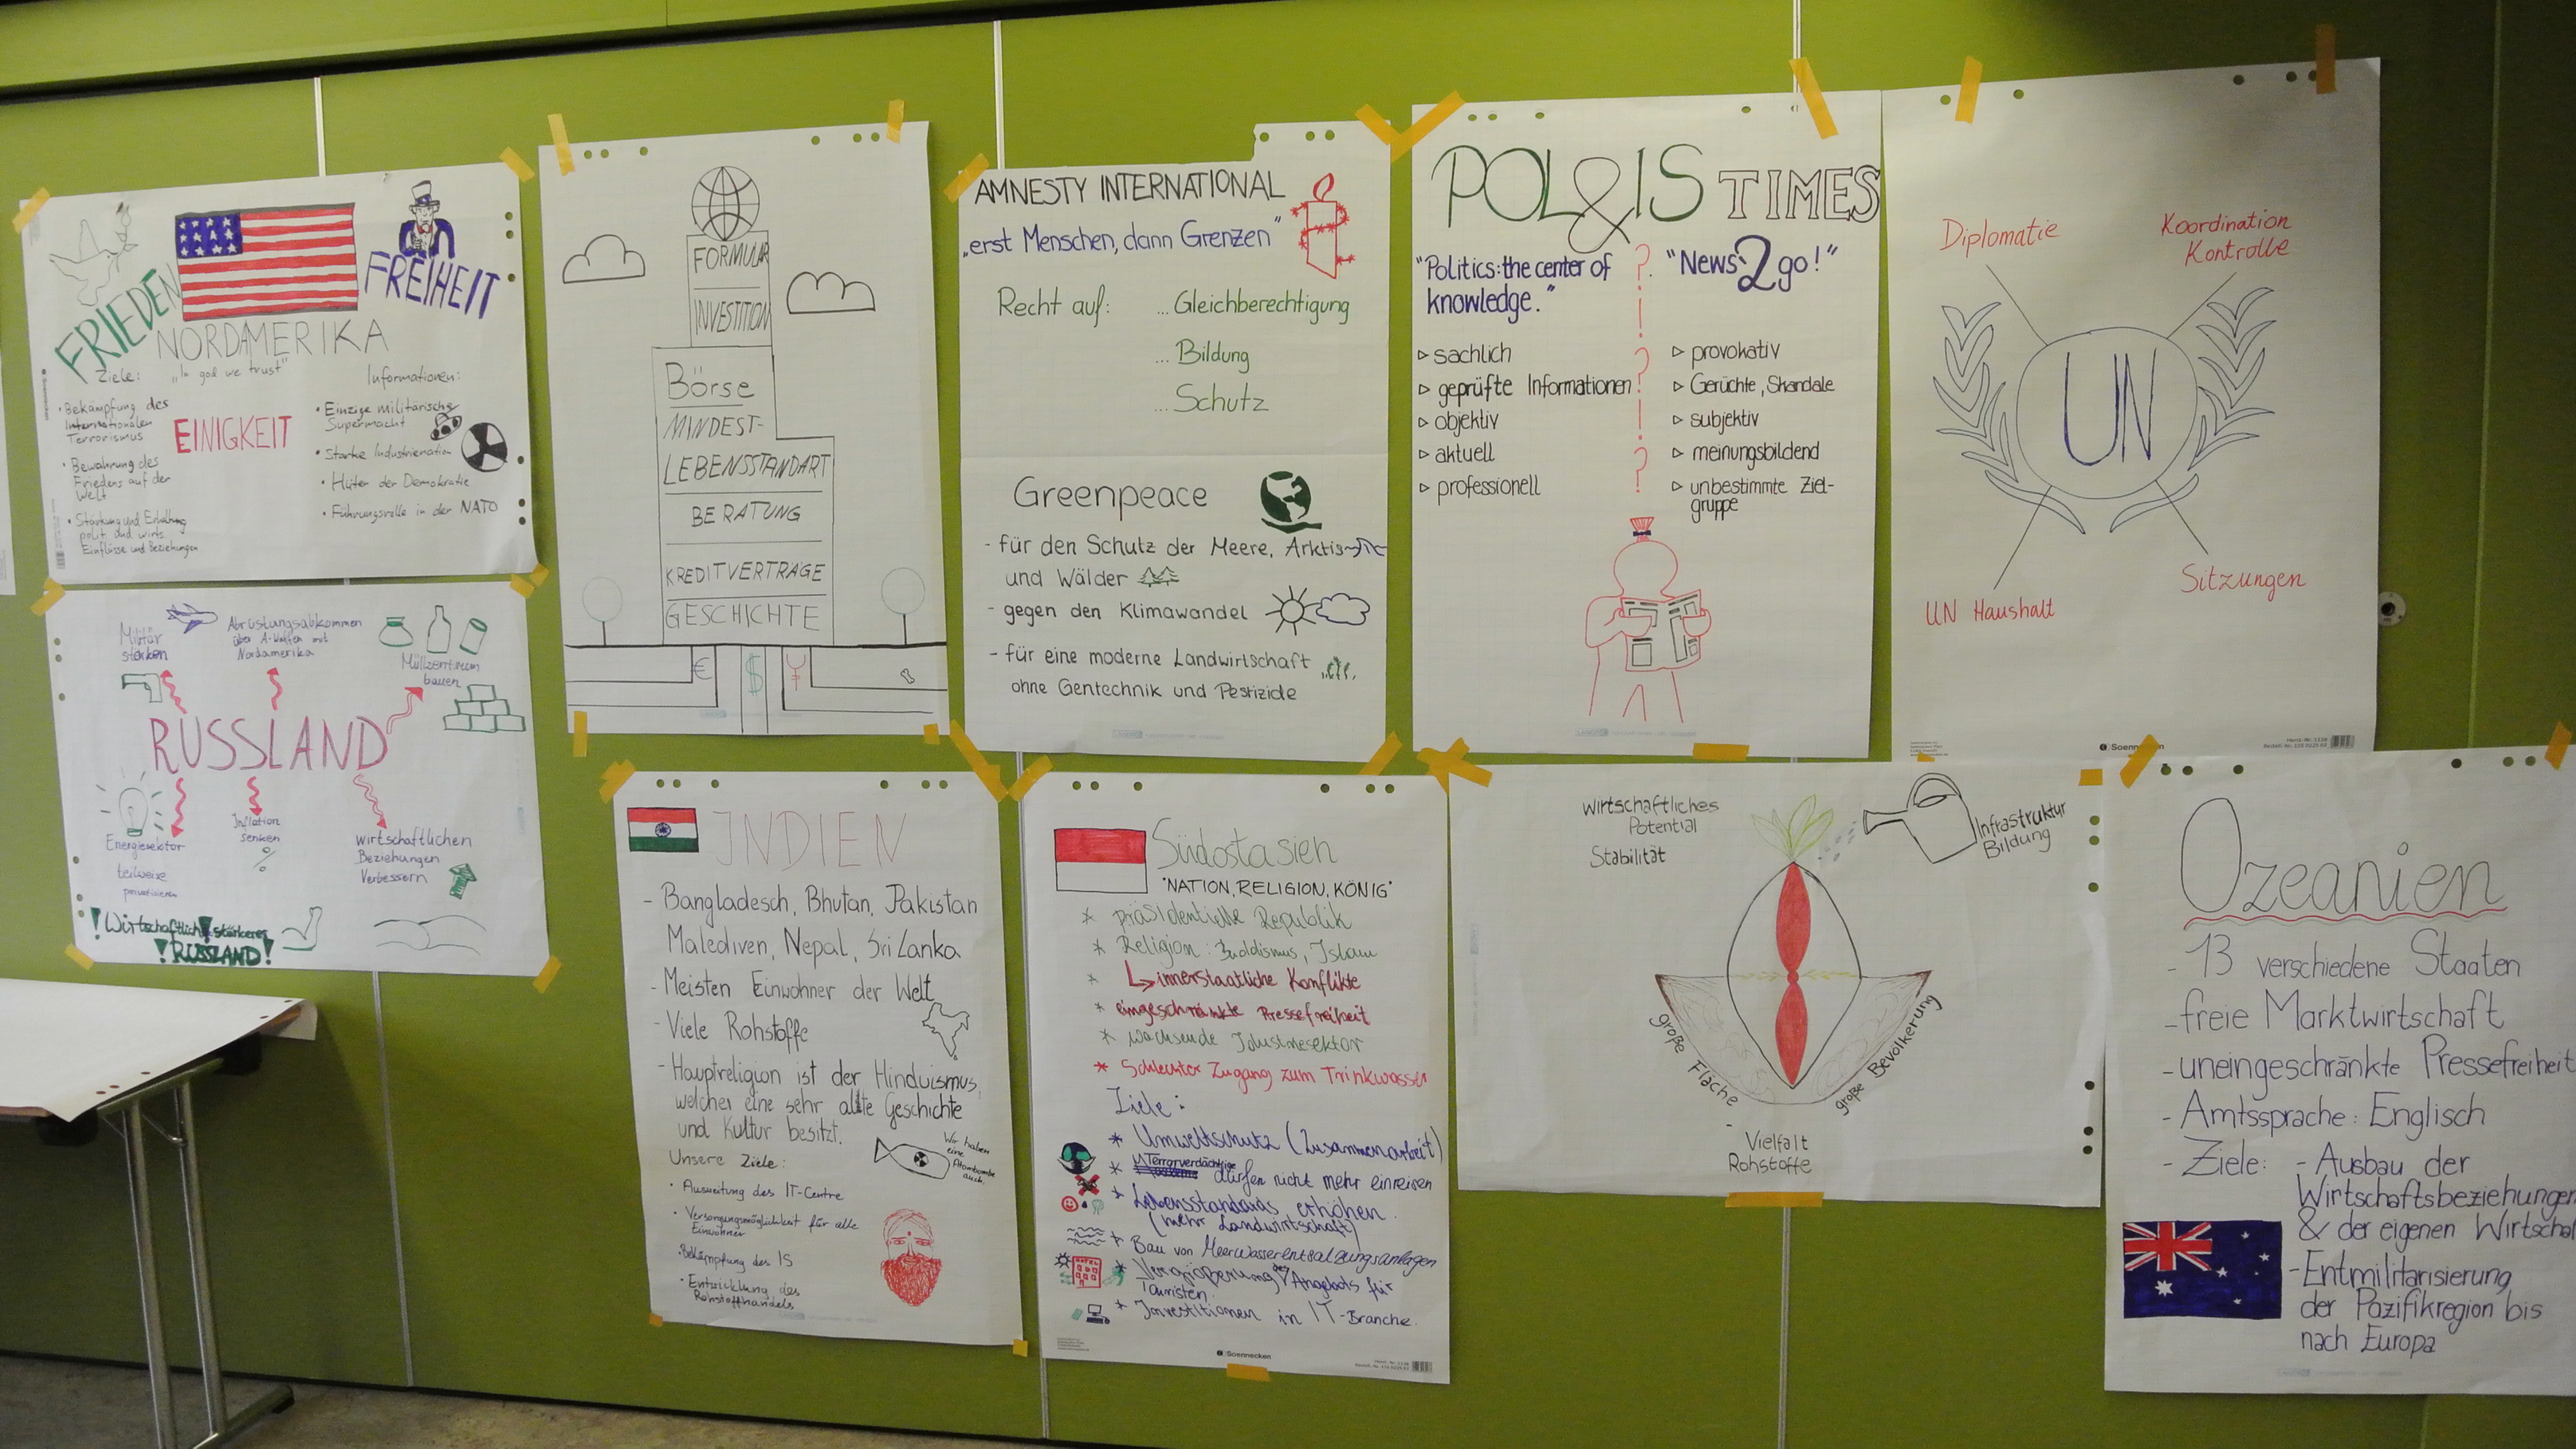 FRIEDEN
FREIHEIT
NORDAMERIKA
„In god we trust"
Ziele:
EINIGKEIT
• Bekämpfung des
Internationalen
Terrorismus
• Bewahrung des
Friedens auf der
Welt
• Stärkung und Erhaltung
polit. und wirts.
Einflüsse und Beziehungen
Informationen:
• Einzige militärische
Supermacht
• Starke Industrienation
• Hüter der Demokratie
• Führungsrolle in der NATO
Militär
stärken
Abrüstungsabkommen
über A-Waffen mit
Nordamerika
Müllzentrum
bauen
RUSSLAND
Energiesektor
teilweise
privatisieren
Inflation
senken
%
wirtschaftlichen
Beziehungen
Verbessern
! Wirtschaftlich stärkeres
! RUSSLAND!
FORMULAR
INVESTITION
Börse
MINDEST-
LEBENSSTANDART
BERATUNG
KREDITVERTRÄGE
GESCHICHTE
€ $ ¥
AMNESTY INTERNATIONAL
„erst Menschen, dann Grenzen"
Recht auf: ...Gleichberechtigung
...Bildung
...Schutz
Greenpeace
- für den Schutz der Meere, Arktis
und Wälder
- gegen den Klimawandel
- für eine moderne Landwirtschaft
ohne Gentechnik und Pestizide
POL&IS TIMES
"Politics: the center of
knowledge."
▷ sachlich
▷ geprüfte Informationen
▷ objektiv
▷ aktuell
▷ professionell
?
!
?
!
?
"News 2 go!"
▷ provokativ
▷ Gerüchte, Skandale
▷ subjektiv
▷ meinungsbildend
▷ unbestimmte Ziel-
gruppe
Diplomatie
Koordination
Kontrolle
UN
UN Haushalt
Sitzungen
Soennecken
INDIEN
- Bangladesch, Bhutan, Pakistan
Malediven, Nepal, Sri Lanka
- Meisten Einwohner der Welt
- Viele Rohstoffe
- Hauptreligion ist der Hinduismus,
welcher eine sehr alte Geschichte
und Kultur besitzt.
Wir haben
eine
Atombombe
auch.
Unsere Ziele:
• Ausweitung des IT-Centre
• Versorgungsmöglichkeit für alle
Einwohner
• Bekämpfung des IS
• Entwicklung des
Rohstoffhandels
Südostasien
"NATION, RELIGION, KÖNIG"
* präsidentielle Republik
* Religion: Buddismus, Islam
* ↳ innerstaatliche Konflikte
* eingeschränkte Pressefreiheit
* wachsende Idustriesektor
* Schlechter Zugang zum Trinkwasser
Ziele:
* Umweltschutz (Zusammenarbeit)
* Terrorverdächtige dürfen nicht mehr einreisen
* Lebensstandards erhöhen
(mehr Landwirtschaft)
* Bau von Meerwasserentsalzungsanlagen
* Vergrößerung des Angebots für
Touristen
* Investitionen in IT-Branche.
Soennecken
Wirtschaftliches
Potential
Stabilität
Infrastruktur
Bildung
große Fläche
große Bevölkerung
Vielfalt
Rohstoffe
Ozeanien
- 13 verschiedene Staaten
- freie Marktwirtschaft
- uneingeschränkte Pressefreiheit
- Amtssprache: Englisch
- Ziele: - Ausbau der
Wirtschaftsbeziehungen
& der eigenen Wirtschaf
- Entmilitarisierung
der Pazifikregion bis
nach Europa